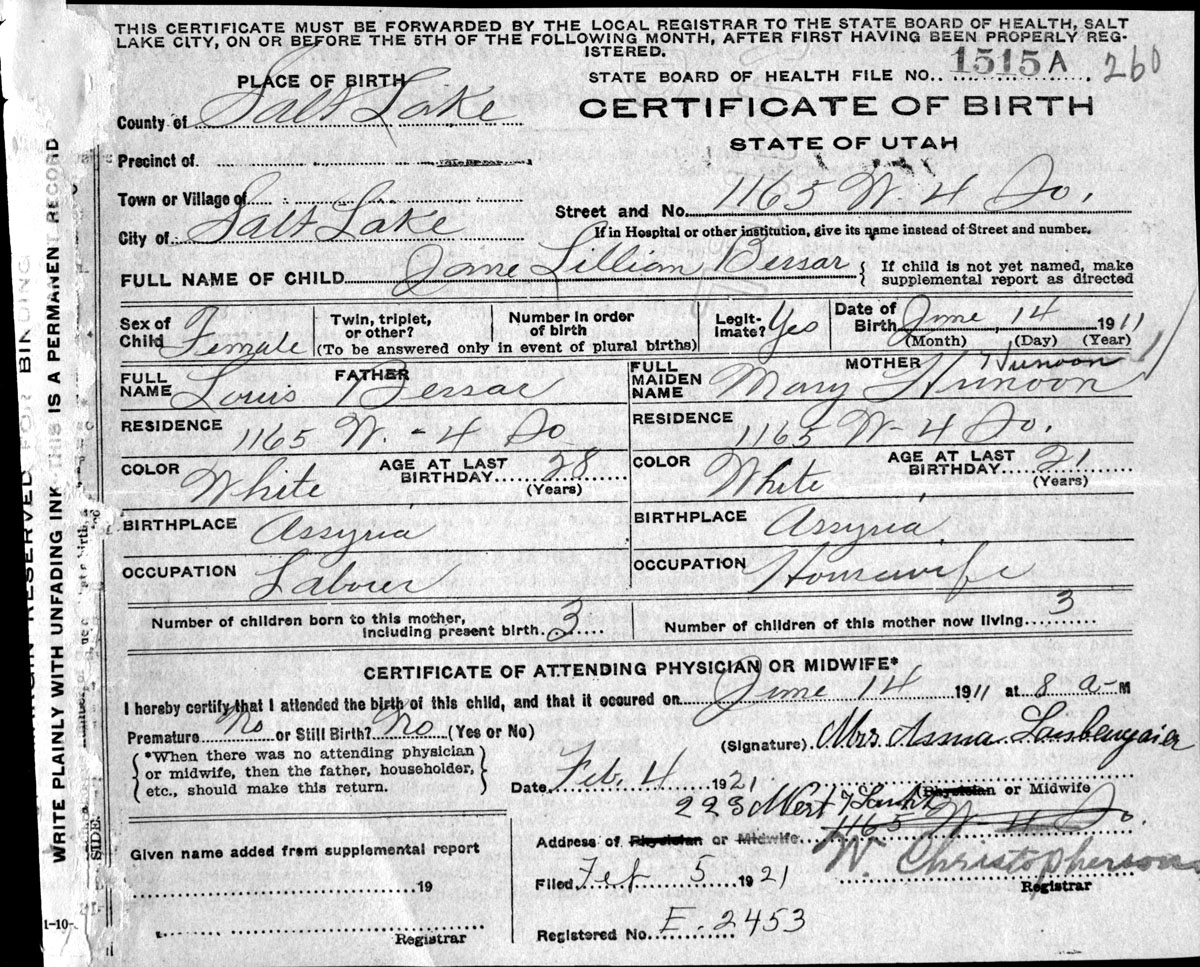 THIS CERTIFICATE MUST BE FORWARDED BY THE LOCAL REGISTRAR TO THE STATE BOARD OF HEALTH, SALT
LAKE CITY, ON OR BEFORE THE 5TH OF THE FOLLOWING MONTH, AFTER FIRST HAVING BEEN PROPERLY REG-
ISTERED.
PLACE OF BIRTH
STATE BOARD OF HEALTH FILE NO. 1515A 260
County of Salt Lake
CERTIFICATE OF BIRTH
STATE OF UTAH
Precinct of
Town or Village of
Street and No. 1165 W. 4 So.
City of Salt Lake
If in Hospital or other institution, give its name instead of Street and number.
FULL NAME OF CHILD Jane Lillian Bessar
If child is not yet named, make
supplemental report as directed
Sex of Child Female
Twin, triplet, or other?
Number in order of birth
(To be answered only in event of plural births)
Legit-imate? Yes
Date of Birth June 14 1911
(Month) (Day) (Year)
FATHER
FULL NAME Louis Bessar
MOTHER
Hunoon
FULL MAIDEN NAME Mary Hunoon
RESIDENCE 1165 W. - 4 So
RESIDENCE 1165 W - 4 So.
COLOR White
AGE AT LAST BIRTHDAY 28 (Years)
COLOR White
AGE AT LAST BIRTHDAY 21 (Years)
BIRTHPLACE Assyria
BIRTHPLACE Assyria
OCCUPATION Laborer
OCCUPATION Housewife
Number of children born to this mother,
including present birth. 3
Number of children of this mother now living 3
CERTIFICATE OF ATTENDING PHYSICIAN OR MIDWIFE*
I hereby certify that I attended the birth of this child, and that it occured on June 14 1911 at 8 a-M
Premature No or Still Birth? No (Yes or No)
(Signature) Mrs. Asma
*When there was no attending physician
or midwife, then the father, householder,
etc., should make this return.
Date Feb. 4 1921
(Physician or Midwife
223 West 7 South
Address of Physician or Midwife 1165 W 4 So.
Given name added from supplemental report
19
Registrar
Filed Feb 5 1921
W. Christopherson
Registrar
Registered No. E. 2453
MARGIN RESERVED FOR BINDING
WRITE PLAINLY WITH UNFADING INK THIS IS A PERMANENT RECORD
SIDE.
1-10-